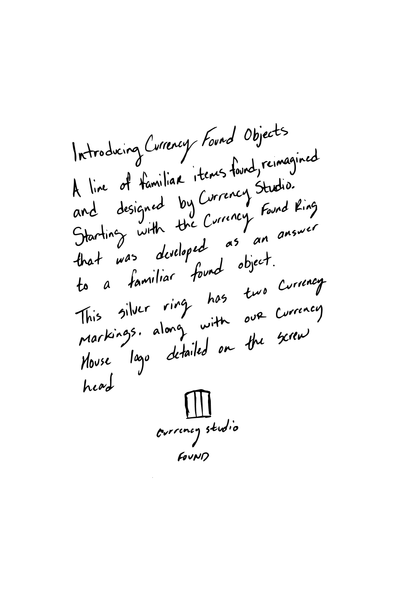 Introducing Currency Found Objects
A line of familiar items found, reimagined
and designed by Currency Studio.
Starting with the Currency Found Ring
that was developed as an answer
to a familiar found object.
This silver ring has two Currency
markings. along with our Currency
House logo detailed on the screw
head
currency studio
FOUND